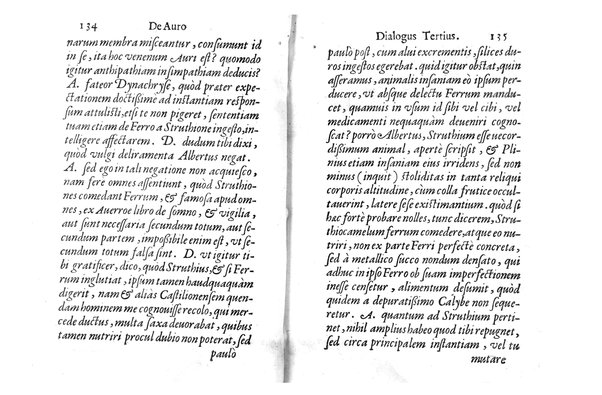 134 De Auro
narum membra misceantur, consumunt id
in se, ita hoc venenum Auri est? quomodo
igitur anthipathiam in simpathiam deducis?
A. fateor Dynachryse, quòd præter expe-
ctationem doctissimè ad instantiam respon-
sum attulisti, etsi te non pigeret, sententiam
tuam etiam de Ferro a Struthione ingesto, in-
telligere affectarem. D. dudum tibi dixi,
quòd vulgi deliramenta Albertus negat.
A. sed ego in tali negatione non acquiesco,
nam fere omnes assentiunt, quòd Struthio-
nes comedant Ferrum, & famosa apud om-
nes, ex Averroe libro de somno, & vigilia,
aut sunt necessaria secundum totum, aut se-
cundum partem, impossibile enim est, vt se-
cundum totum falsa sint. D. vt igitur ti-
bi gratificer, dico, quòd Struthius, & si Fer-
rum inglutiat, ipsum tamen haudquaquàm
digerit, nam & aliàs Castilionensem quen-
dam hominem me cognouisse recolo, qui mer-
cede ductus, multa saxa deuorabat, quibus
tamen nutriri procul dubio non poterat, sed
paulò
Dialogus Tertius. 135
paulò post, cum alui excrementis, silices du-
ros ingestos egerebat. quid igitur obstat, quin
asseramus, animalis insaniam eò ipsum per-
ducere, vt absque delectu Ferrum mandu-
cet, quamuis in vsum id sibi vel cibi, vel
medicamenti nequaquàm deueniri cognos-
cat? porrò Albertus, Struthium esse vecor-
dissimum animal, apertè scripsit, & Pli-
nius etiam insaniam eius irridens, sed non
minus (inquit) stoliditas in tanta reliqui
corporis altitudine, cùm colla frutice occul-
tauerint, latere sese existimantium. quòd si
hac fortè probare nolles, tunc dicerem, Stru-
thiocamelum ferrum comedere, atque eo nu-
triri, non ex parte Ferri perfectè concreta,
sed à metallico succo nondum densato, qui
adhuc in ipso Ferro ob suam imperfectionem
inesse censetur, alimentum desumit, quòd
quidem a depuratissimo Calybe non seque-
retur. A. quantum ad Struthium perti-
net, nihil amplius habeo quod tibi repugnet,
sed circa principalem instantiam, vel tu
mutare